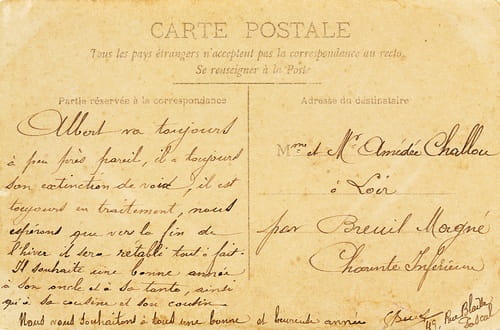 CARTE POSTALE
Tous les pays étrangers n'acceptent pas la correspondance au recto.
Se renseigner à la Poste
Partie réservée à la correspondance
Albert va toujours
à peu près pareil, il a toujours
son extinction de voix, il est
toujours en traitement, nous
espérons que vers la fin de
l'hiver il sera rétabli tout à fait.
Il souhaite une bonne année
à son oncle et à sa tante, ainsi
qu'à sa cousine et son cousin.
Nous vous souhaitons à tous une bonne et heureuse année
Adresse du destinataire
Mme et Mr Amédée Challou
à Loir
par Breuil Magné
Charente Inférieure
Rue